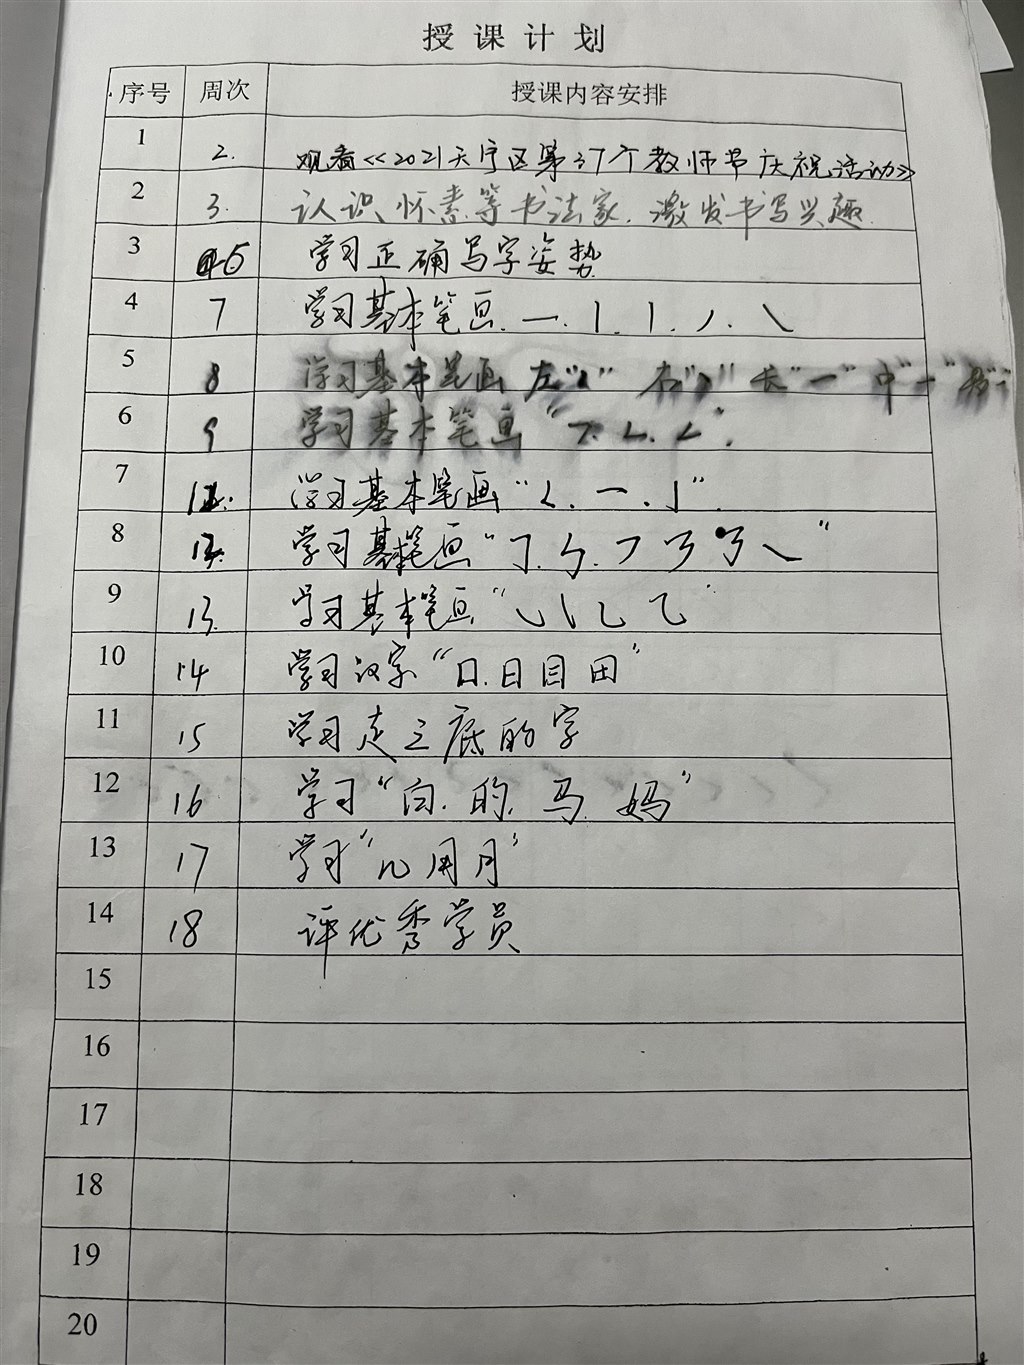 授课计划
序号 周次 授课内容安排
1 2. 观看《2021天宁区第37个教师节庆祝活动》
2 3. 认识怀素等书法家.激发书写兴趣.
3 6 学习正确写字姿势
4 7 学习基本笔画.一.丨.丨.丿.㇏
5 8 学习基本笔画 左" " 右" " 长"一" 中"一"
6 9 学习基本笔画"
7 12. 学习基本笔画" 一.亅".
8 13. 学习基本笔画"㇆.㇉.㇇ ㇋ ㇌ ㇏"
9 13. 学习基本笔画"㇃ ㇂ ㇄ ㇈"
10 14 学习汉字"口.日目田"
11 15 学习走之底的字
12 16 学习"白.的.马.妈"
13 17 学习"几用月"
14 18 评优秀学员
15
16
17
18
19
20